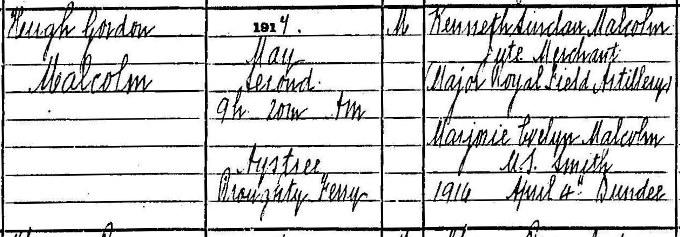 Hugh Gordon
Malcolm
1917.
May
Second
9h 20m AM
Aystree
Broughty Ferry
M
Kenneth Sinclair Malcolm
Jute Merchant
(Major Royal Field Artillery)
Marjorie Evelyn Malcolm
M.S. Smith
1916 April 4th Dundee